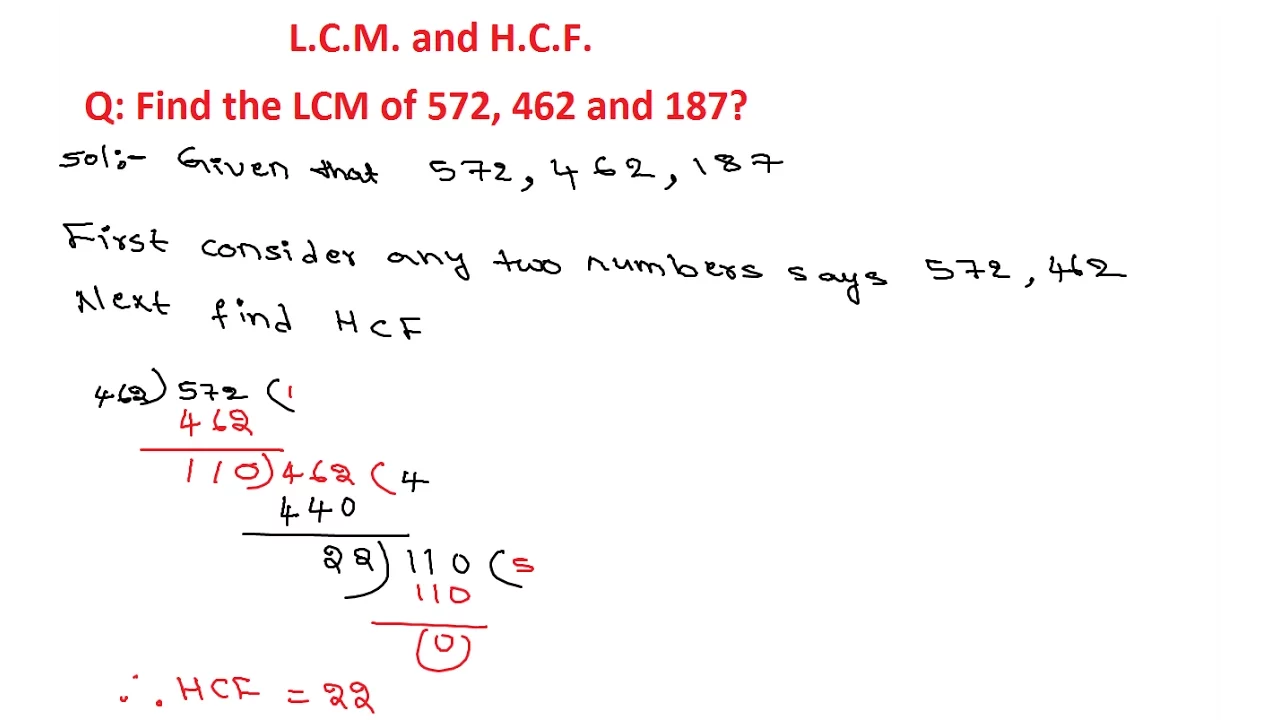 L.C.M. and H.C.F.
Q: Find the LCM of 572, 462 and 187?
Sol:- Given that 572, 462, 187
First consider any two numbers says 572, 462
Next find HCF
462) 572 (1
462
110) 462 (4
440
22) 110 (5
110
(0)
∴ HCF = 22